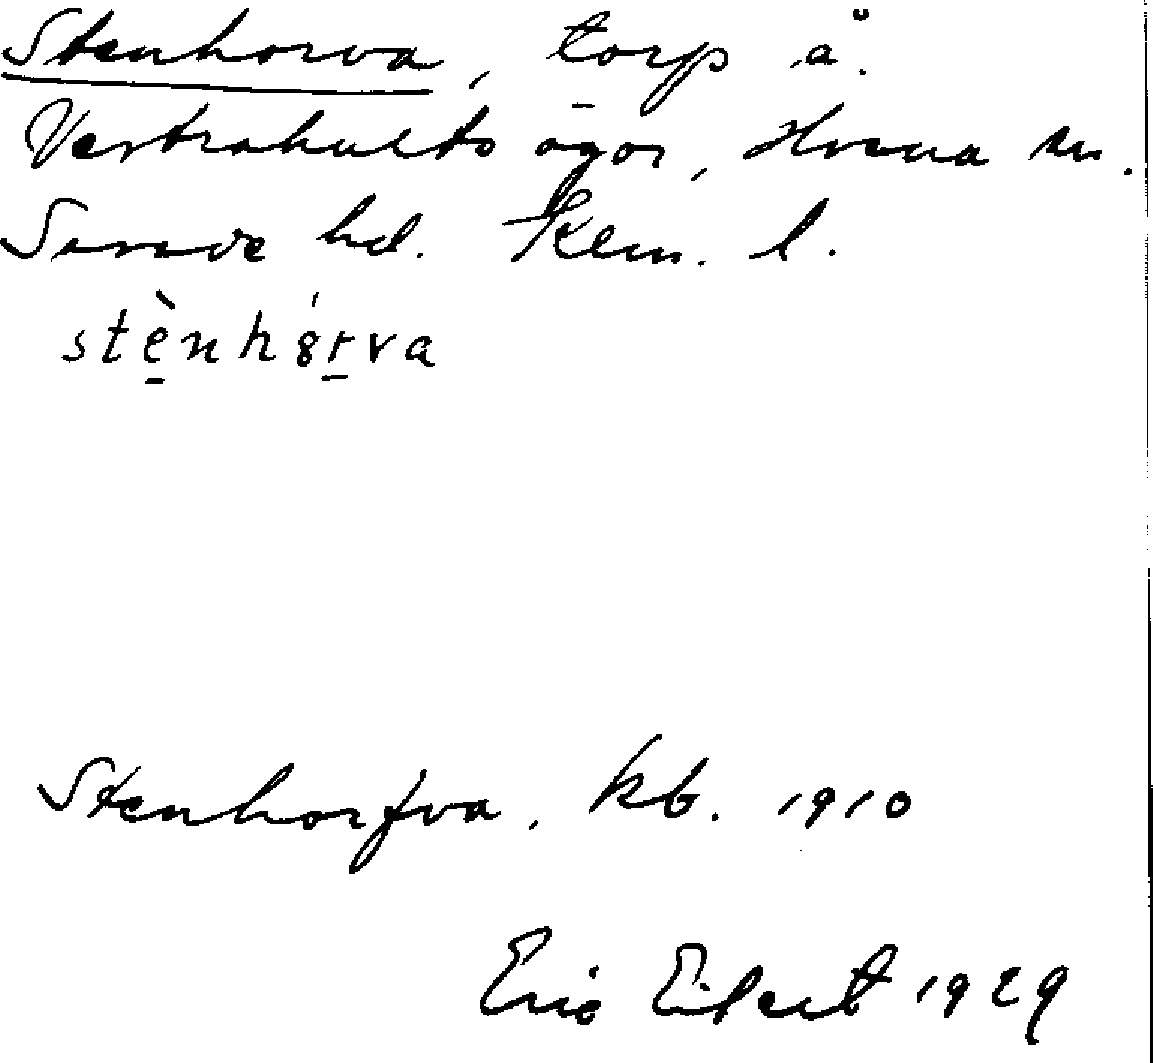 Stenhorva, torp å
Västrahults ägor, Hvena sn.
Sevede hd. Kalm. l.
stènhȣ́rva
Stenhorfva. kb. 1910
Eric Elfert 1929